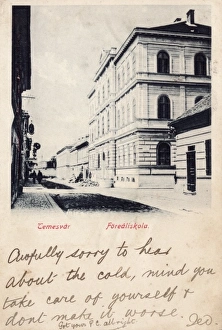 Temesvár Főreáliskola.
Awfully sorry to hear
about the cold, mind you
take care of yourself &
dont make it worse.
Got your P.C. allright. Ded